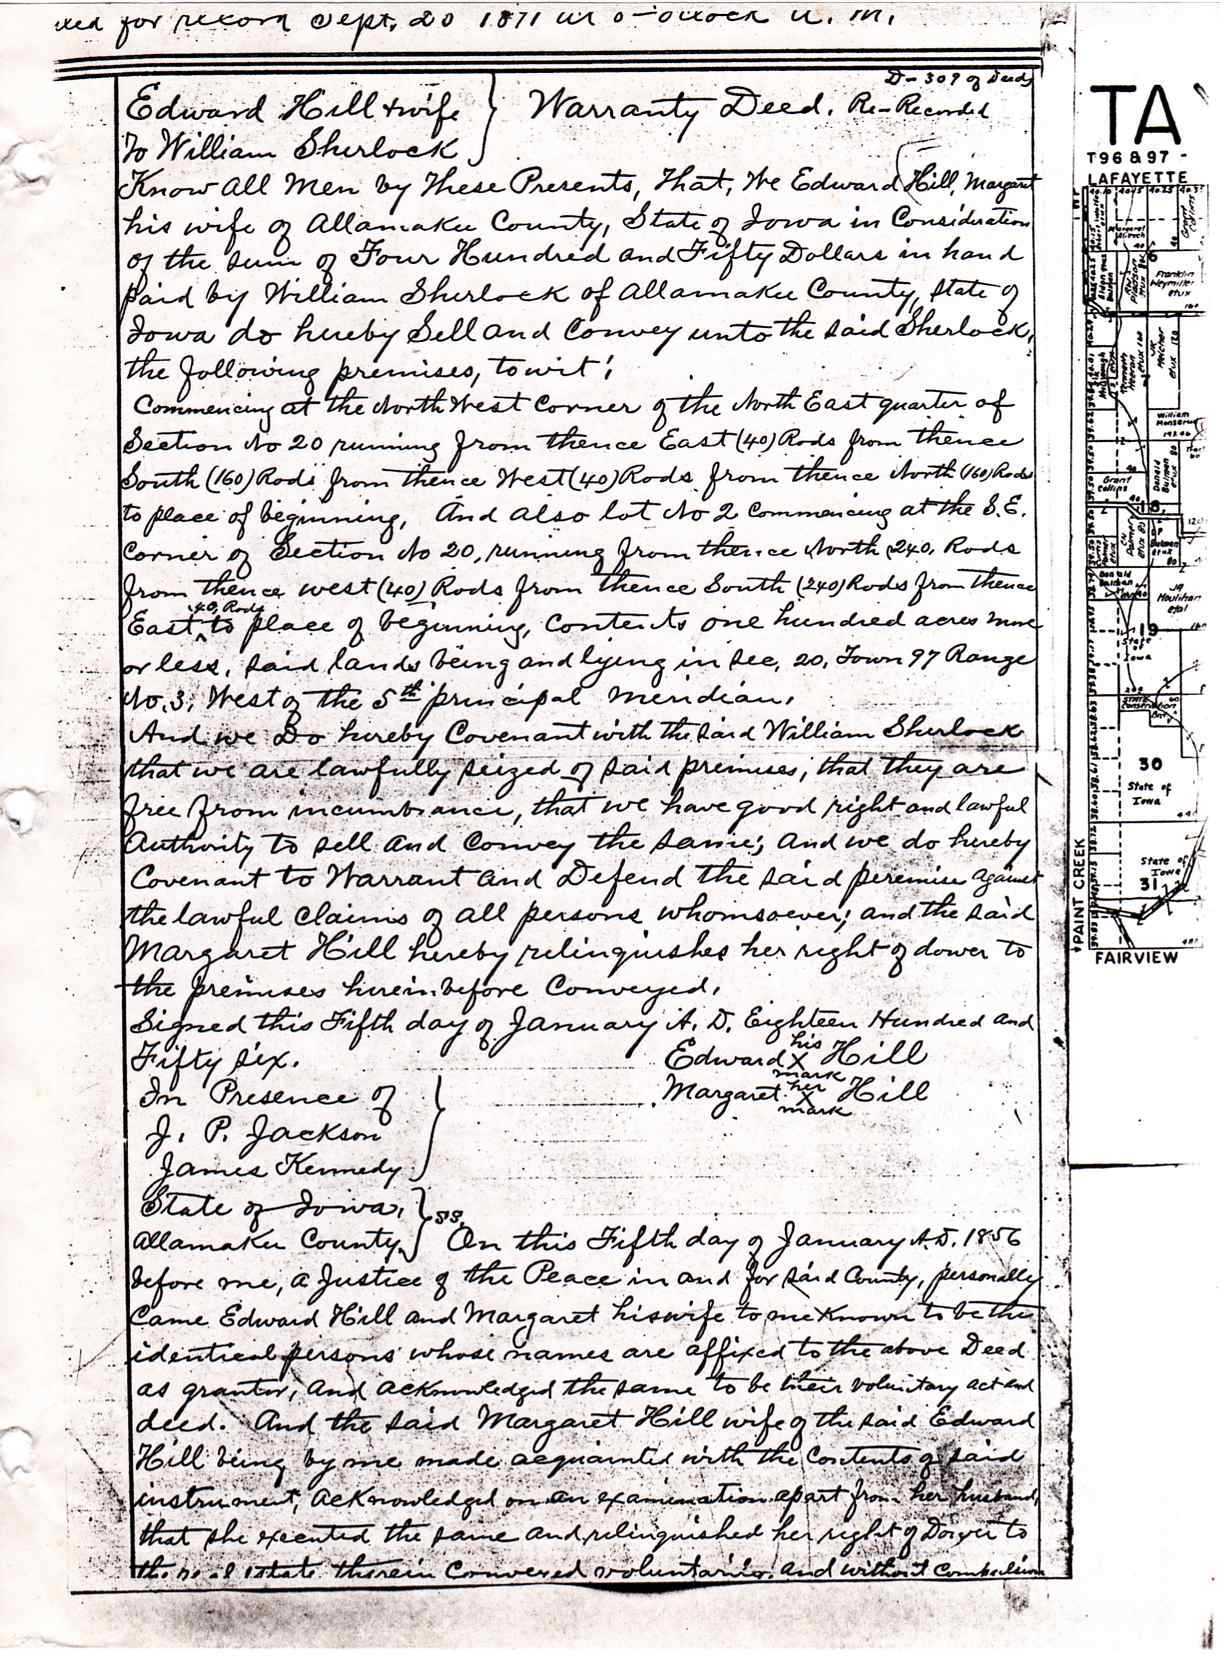 for record Sept. 20 1871 at o-clock A. M.
D-309 of Deeds
Edward Hill & wife
Warranty Deed. Re-Recorded
To William Sherlock
Know All Men by These Presents, That, We Edward Hill, Margaret
his wife of Allamakee County, State of Iowa in Consideration
of the sum of Four Hundred and Fifty Dollars in hand
paid by William Sherlock of Allamakee County, State of
Iowa do hereby Sell and Convey unto the said Sherlock,
the following premises, to wit:
Commencing at the North West Corner of the North East quarter of
Section No 20 running from thence East (40) Rods from thence
South (160) Rods from thence West (40) Rods from thence North (160) Rods
to place of beginning, And also lot No 2 commencing at the S.E.
Corner of Section No 20, running from thence North 240, Rods
from thence west (40) Rods from thence South (240) Rods from thence
40, Rods
East to place of beginning, contents one hundred acres more
or less, said lands being and lying in Sec, 20, Town 97 Range
No, 3, West of the 5th principal meridian,
And we Do hereby Covenant with the said William Sherlock
that we are lawfully seized of said premises, that they are
free from incumbrance, that we have good right and lawful
Authority to sell and Convey the same; and we do hereby
Covenant to Warrant and Defend the said peremise against
the lawful claims of all persons whomsoever; and the said
Margaret Hill hereby relinquishes her right of dower to
the premises herein before Conveyed,
Signed this Fifth day of January A. D. Eighteen Hundred and
Fifty six.
Edward his X mark Hill
In Presence of
Margaret her X mark Hill
J. P. Jackson
James Kennedy
State of Iowa,
ss,
Allamakee County, On this Fifth day of January A.D. 1856
before me, a Justice of the Peace in and for said County, personally
Came Edward Hill and Margaret his wife to me known to be the
identical persons whose names are affixed to the above Deed
as grantor, and acknowledged the same to be their voluntary act and
deed. And the said Margaret Hill wife of the said Edward
Hill being by me made acquainted with the Contents of said
instrument, acknowledged on an examination apart from her husband,
that she excented the same and relinquished her right of Dower to
the real estate therein Conveyed voluntarily and without Compulsion
TA
T96 & 97 -
LAFAYETTE
6
Franklin
Weymiller
etux
William
Monserud
Grant
Collins
Donald
Bulman
etux
18
JA
Houlihan
etal
19
State
of
Iowa
State
Conservation
30
State of
Iowa
State of
Iowa
31
PAINT CREEK
FAIRVIEW